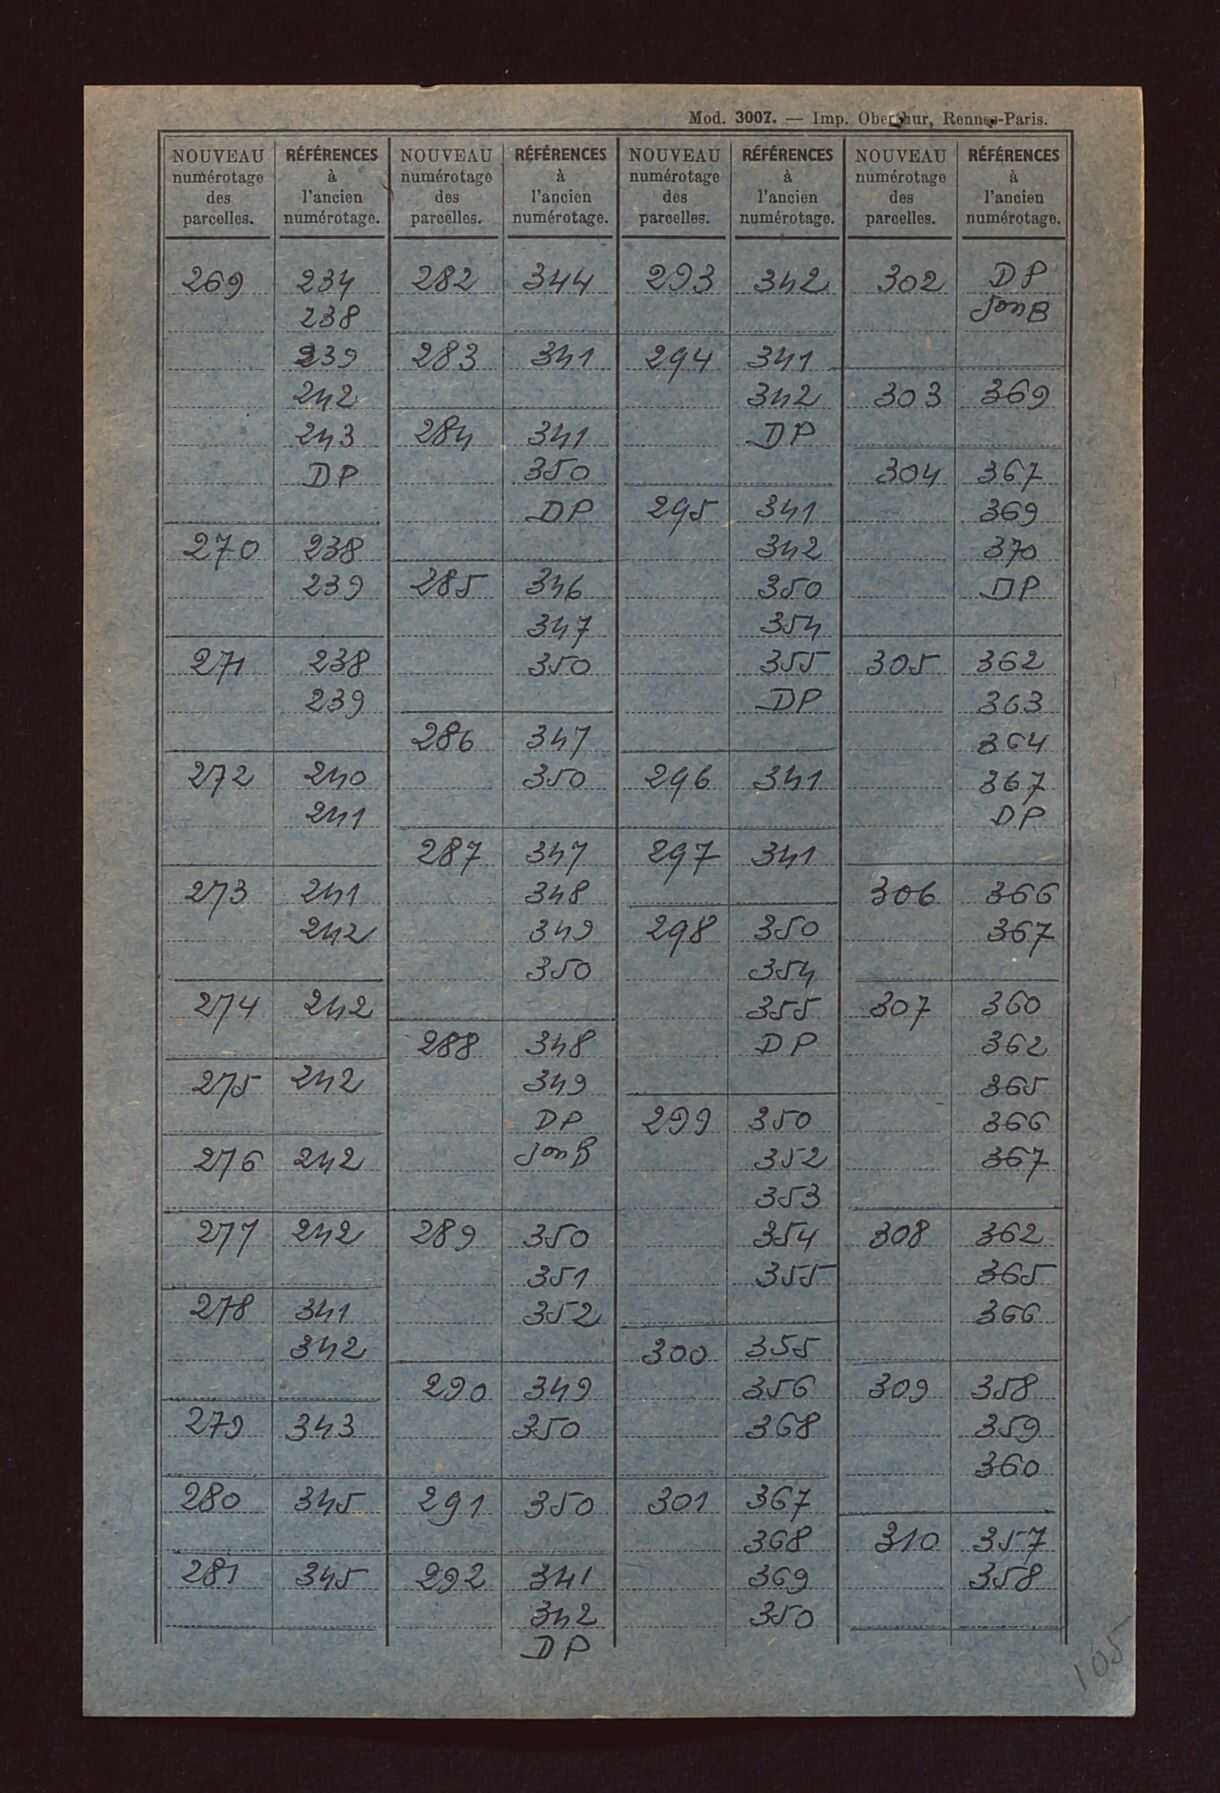 Mod. 3007. — Imp. Oberthur, Rennes-Paris.
NOUVEAU numérotage des parcelles.
RÉFÉRENCES à l'ancien numérotage.
269 234
238
239
242
243
DP
270 238
239
271 238
239
272 240
241
273 241
242
274 242
275 242
276 242
277 242
278 341
342
279 343
280 345
281 345
NOUVEAU numérotage des parcelles.
RÉFÉRENCES à l'ancien numérotage.
282 344
283 341
284 341
350
DP
285 346
347
350
286 347
350
287 347
348
349
350
288 348
349
DP
JonB
289 350
351
352
290 349
350
291 350
292 341
342
DP
NOUVEAU numérotage des parcelles.
RÉFÉRENCES à l'ancien numérotage.
293 342
294 341
342
DP
295 341
342
350
354
355
DP
296 341
297 341
298 350
354
355
DP
299 350
352
353
354
355
300 355
356
368
301 367
368
369
350
NOUVEAU numérotage des parcelles.
RÉFÉRENCES à l'ancien numérotage.
302 DP
JonB
303 369
304 367
369
370
DP
305 362
363
364
367
DP
306 366
367
307 360
362
365
366
367
308 362
365
366
309 358
359
360
310 357
358
105